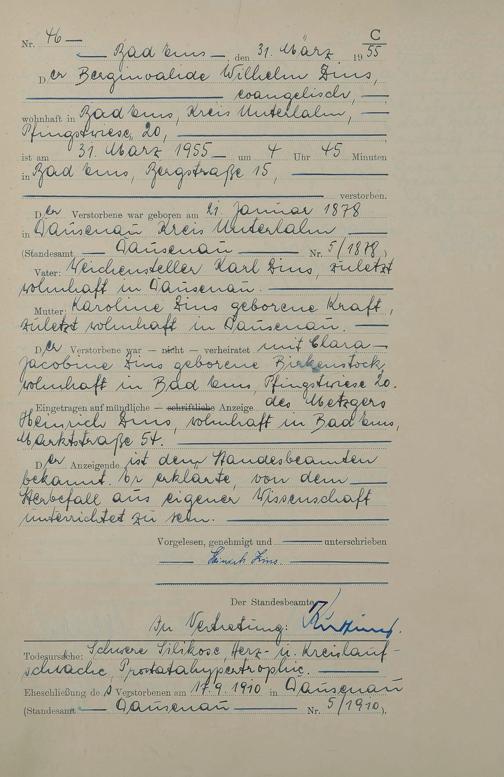 C
Nr. 46
Bad Ems, den 31. März 1955
Der Berginvalide Wilhelm Zins,
evangelisch,
wohnhaft in Bad Ems, Kreis Unterlahn,
Pfingstwiese 20,
ist am 31. März 1955 um 4 Uhr 45 Minuten
in Bad Ems, Bergstraße 15,
verstorben.
Der Verstorbene war geboren am 21. Januar 1878
in Dausenau Kreis Unterlahn
(Standesamt Dausenau Nr. 5/1878)
Vater: Weichensteller Karl Zins, zuletzt
wohnhaft in Dausenau.
Mutter: Karoline Zins geborene Kraft,
zuletzt wohnhaft in Dausenau.
Der Verstorbene war — nicht — verheiratet mit Clara
Jacobine Zins geborene Birkenstock,
wohnhaft in Bad Ems, Pfingstwiese 20.
Eingetragen auf mündliche — schriftliche Anzeige des Metzgers
Heinrich Zins, wohnhaft in Bad Ems,
Marktstraße 54.
Der Anzeigende ist dem Standesbeamten
bekannt. Er erklärte, von dem
Sterbefall aus eigener Wissenschaft
unterrichtet zu sein.
Vorgelesen, genehmigt und unterschrieben
Heinrich Zins.
Der Standesbeamte
In Vertretung:
Todesursache: Schwere Silikose, Herz- u. Kreislauf-
schwäche, Prostatahypertrophie.
Eheschließung des Verstorbenen am 17.9.1910 in Dausenau
(Standesamt Dausenau Nr. 5/1910).